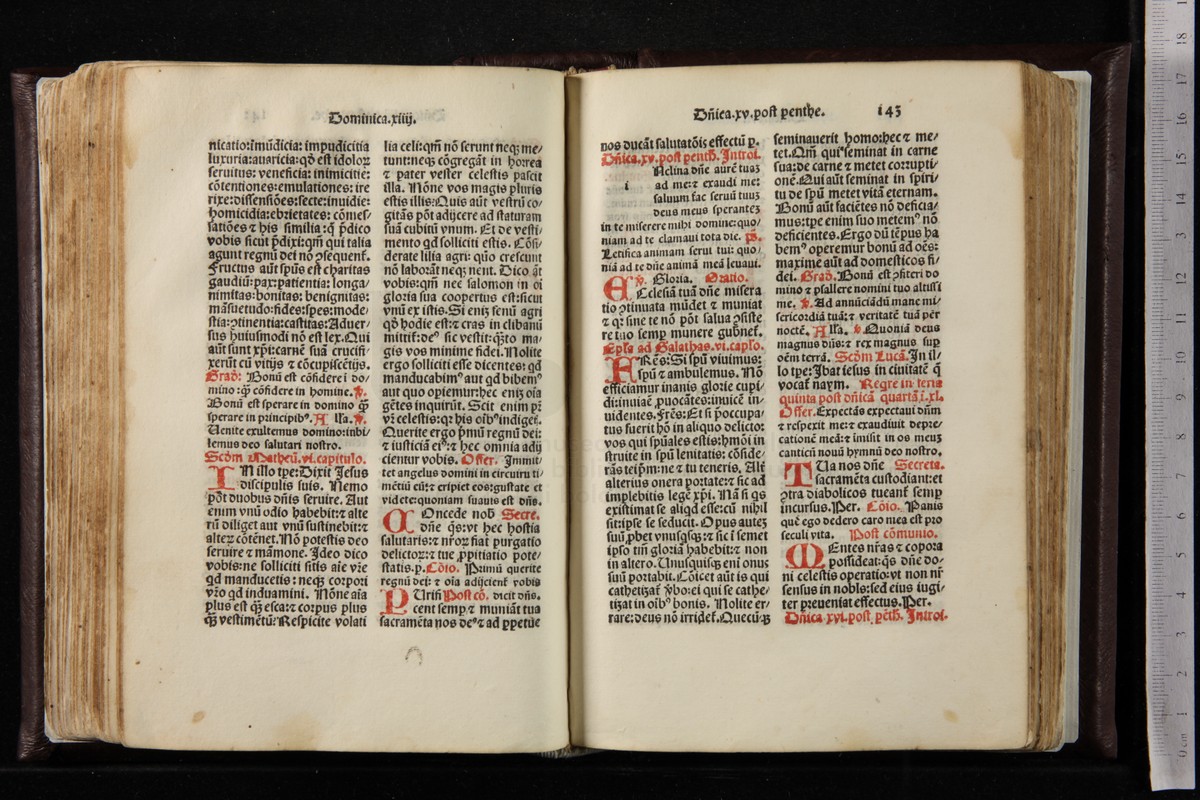 Dominica.xiiij.
nicatio:īmūdicia: impudicitia
luxuria:auaricia:qđ est idoloꝝ
seruitus: veneficia: inimicitię:
cōtentiones:emulationes: ire
rixe:dissensiōes:secte:inuidie:
homicidia:ebrietates: cōmes/
satiōes ⁊ his similia:q̄ p̄dico
vobis sicut p̄dixi:qm̄ qui talia
agunt regnū dei nō ꝯsequent̄.
Fructus aūt sp̄us est charitas
gaudiū:pax:patientia: longa/
nimitas:bonitas: benignitas:
māsuetudo:fides:spes:mode/
stia:ꝯtinentia:castitas:Aduer/
sus huiusmodi nō est lex.Qui
aūt sunt xp̄i:carnē suā crucifi/
xerūt cū vitijs ⁊ cōcupiscētijs.
Grad: Bonū est cōfidere ī do/
mino :q̄ȝ cōfidere in homine. ℣.
Bonū est sperare in domino q̄ȝ
sperare in principibꝰ. Alla. ℣.
Uenite exultemus domino:iubi/
lemus deo salutari nostro.
Scđm Matheū.vi.capitulo.
IN illo tp̄e:Dixit Jesus
discipulis suis. Nemo
pōt duobus dn̄is seruire. Aut
enim vnū odio habebit:⁊ alte
rū diliget aut vnū sustinebit:⁊
alteꝝ cōtēnet.Nō potestis deo
seruire ⁊ māmone. Jdeo dico
vobis:ne solliciti sitis aīe vr̄e
qd manducetis : neqꝫ corpori
vr̄o qd induamini. Nōne aīa
plus est q̄ȝ esca:⁊ corpus plus
q̄ȝ vestimētū:Respicite volati
lia celi:qm̄ nō serunt neqꝫ me/
tunt:neqꝫ cōgregāt in horrea
⁊ pater vester celestis pascit
illa. Nōne vos magis pluris
estis illis:Quis aūt vestrū co/
gitās pōt adijcere ad staturam
suā cubitū vnum. Et de vesti/
mento qd solliciti estis. Cōsi/
derate lilia agri: quō crescunt
nō laborāt neqꝫ nent. Dico āt
vobis:qm̄ nec salomon in oī
gloria sua coopertus est:sicut
vnū ex istis.Si eniꝫ fenū agri
qđ hodie est:⁊ cras in clibanū
mittit̄:deꝰ sic vestit:q̄sto ma/
gis vos minime fidei.Nolite
ergo solliciti esse dicentes: qd
manducabimꝰ aut qd bibemꝰ
aut quo opiemur:hec eniꝫ oīa
gētes inquirūt. Scit enim pr̄
vr̄ celestis:qꝛ his oībꝰ indiget̄.
Querite ergo p̄mū regnū dei:
⁊ iusticiā eiꝰ:⁊ hec omnia adij
cientur vobis. Offer. Jmmit/
tet angelus domini in circuitu ti/
mētiū eū:⁊ eripiet eos:gustate et
videte:quoniam suauis est dn̄s.
COncede nob̄ Secre.
dn̄e q̄s:vt hec hostia
salutaris:⁊ nr̄oꝝ fiat purgatio
delictoꝝ:⁊ tue ꝓpitiatio pote/
statis.p. Cōio. Primū querite
regnū dei: ⁊ oīa adijcient̄ vobis
PUrifi Post cō. dicit dn̄s.
cent semp̄ ⁊ muniāt tua
sacramēta nos deꝰ:⁊ ad ꝑpetue
Dn̄ica.xv.post penthe. 143
nos ducāt saluatōis effectū p.
Dn̄ica.xv.post penth. Jntroi.
i Nclina dn̄e aurē tuaꝫ
ad me:⁊ exaudi me:
saluum fac seruū tuuꝫ
deus meus speranteꝫ
in te miserere mihi domine:quo/
niam ad te clamaui tota die. p̄s.
Letifica animam serui tui: quo/
niā ad te dn̄e animā meā leuaui.
℣. Gloria. Oratio.
ECclesiā tuā dn̄e misera
tio ꝯtinuata mūdet ⁊ muniat
⁊ qꝛ sine te nō pōt salua ꝯsiste
re tuo semp̄ munere gub̄net̄.
Ep̄la ad Galathas.vi.capl̄o.
FRēs:Si sp̄u viuimus:
sp̄u ⁊ ambulemus. Nō
efficiamur inanis glorie cupi/
di:inuicē ꝓuocātes:inuicē in/
uidentes. Fr̄es:Et si p̄occupa/
tus fuerit hō in aliquo delicto:
vos qui sp̄uales estis:hm̄oi in
struite in sp̄u lenitatis: cōside/
rās teip̄m:ne ⁊ tu teneris. Alt̄
alterius onera portate:⁊ sic ad
implebitis legē xp̄i. Nā si qs
existimat se aliqd esse:cū nihil
sit:ip̄se se seducit. Opus auteꝫ
suū ꝓbet vnusqsqꝫ:⁊ sic ī semet
ip̄so tm̄ gloriā habebit:⁊ non
in altero. Unusquisqꝫ eni onus
suū portabit.Cōicet aūt is qui
cathetizat̄ ꝟbo:ei qui se cathe/
tizat in oībꝰ bonis. Nolite er/
rare:deus nō irridet̄.Quecūqꝫ
seminauerit homo:hec ⁊ me/
tet.Qm̄ qui seminat in carne
sua:de carne ⁊ metet corrupti/
onē.Qui aūt seminat in spiri/
tu de sp̄u metet vitā eternam.
Bonū aūt faciētes nō deficia/
mus:tp̄e enim suo metemꝰ nō
deficientes.Ergo dū tēpus ha
bemꝰ operemur bonū ad oēs:
maxime aūt ad domesticos fi/
dei. Grad. Bonū est ꝯfiteri do
mino ⁊ psallere nomini tuo altissi
me. ℣. Ad annūciādū mane mi/
sericordiā tuā:⁊ veritatē tuā per
noctē. Alla. ℣. Quoniā deus
magnus dn̄s:⁊ rex magnus suꝑ
oēm terrā. Scđm Lucā.Jn il/
lo tp̄e:Jbat iesus in ciuitatē q̄
vocat̄ naym. Regre in feria
quinta post dn̄icā quartā.i.xl.
Offer.Expectās expectaui dūm
⁊ respexit me:⁊ exaudiuit depre/
cationē meā:⁊ imisit in os meuꝫ
canticū nouū hymnū deo nostro.
TUa nos dn̄e Secreta.
sacramēta custodiant:et
ꝯtra diabolicos tueant̄ semp̄
incursus.Per. Cōio. Panis
quē ego dedero caro mea est pro
seculi vita. Post cōmunio.
MEntes nr̄as ⁊ corpora
possideat:q̄s dn̄e do/
ni celestis operatio:vt non nr̄
sensus in nobis:sed eius iugi/
ter preueniat effectus.Per.
Dn̄ica.xvi.post pēth. Jntroi.